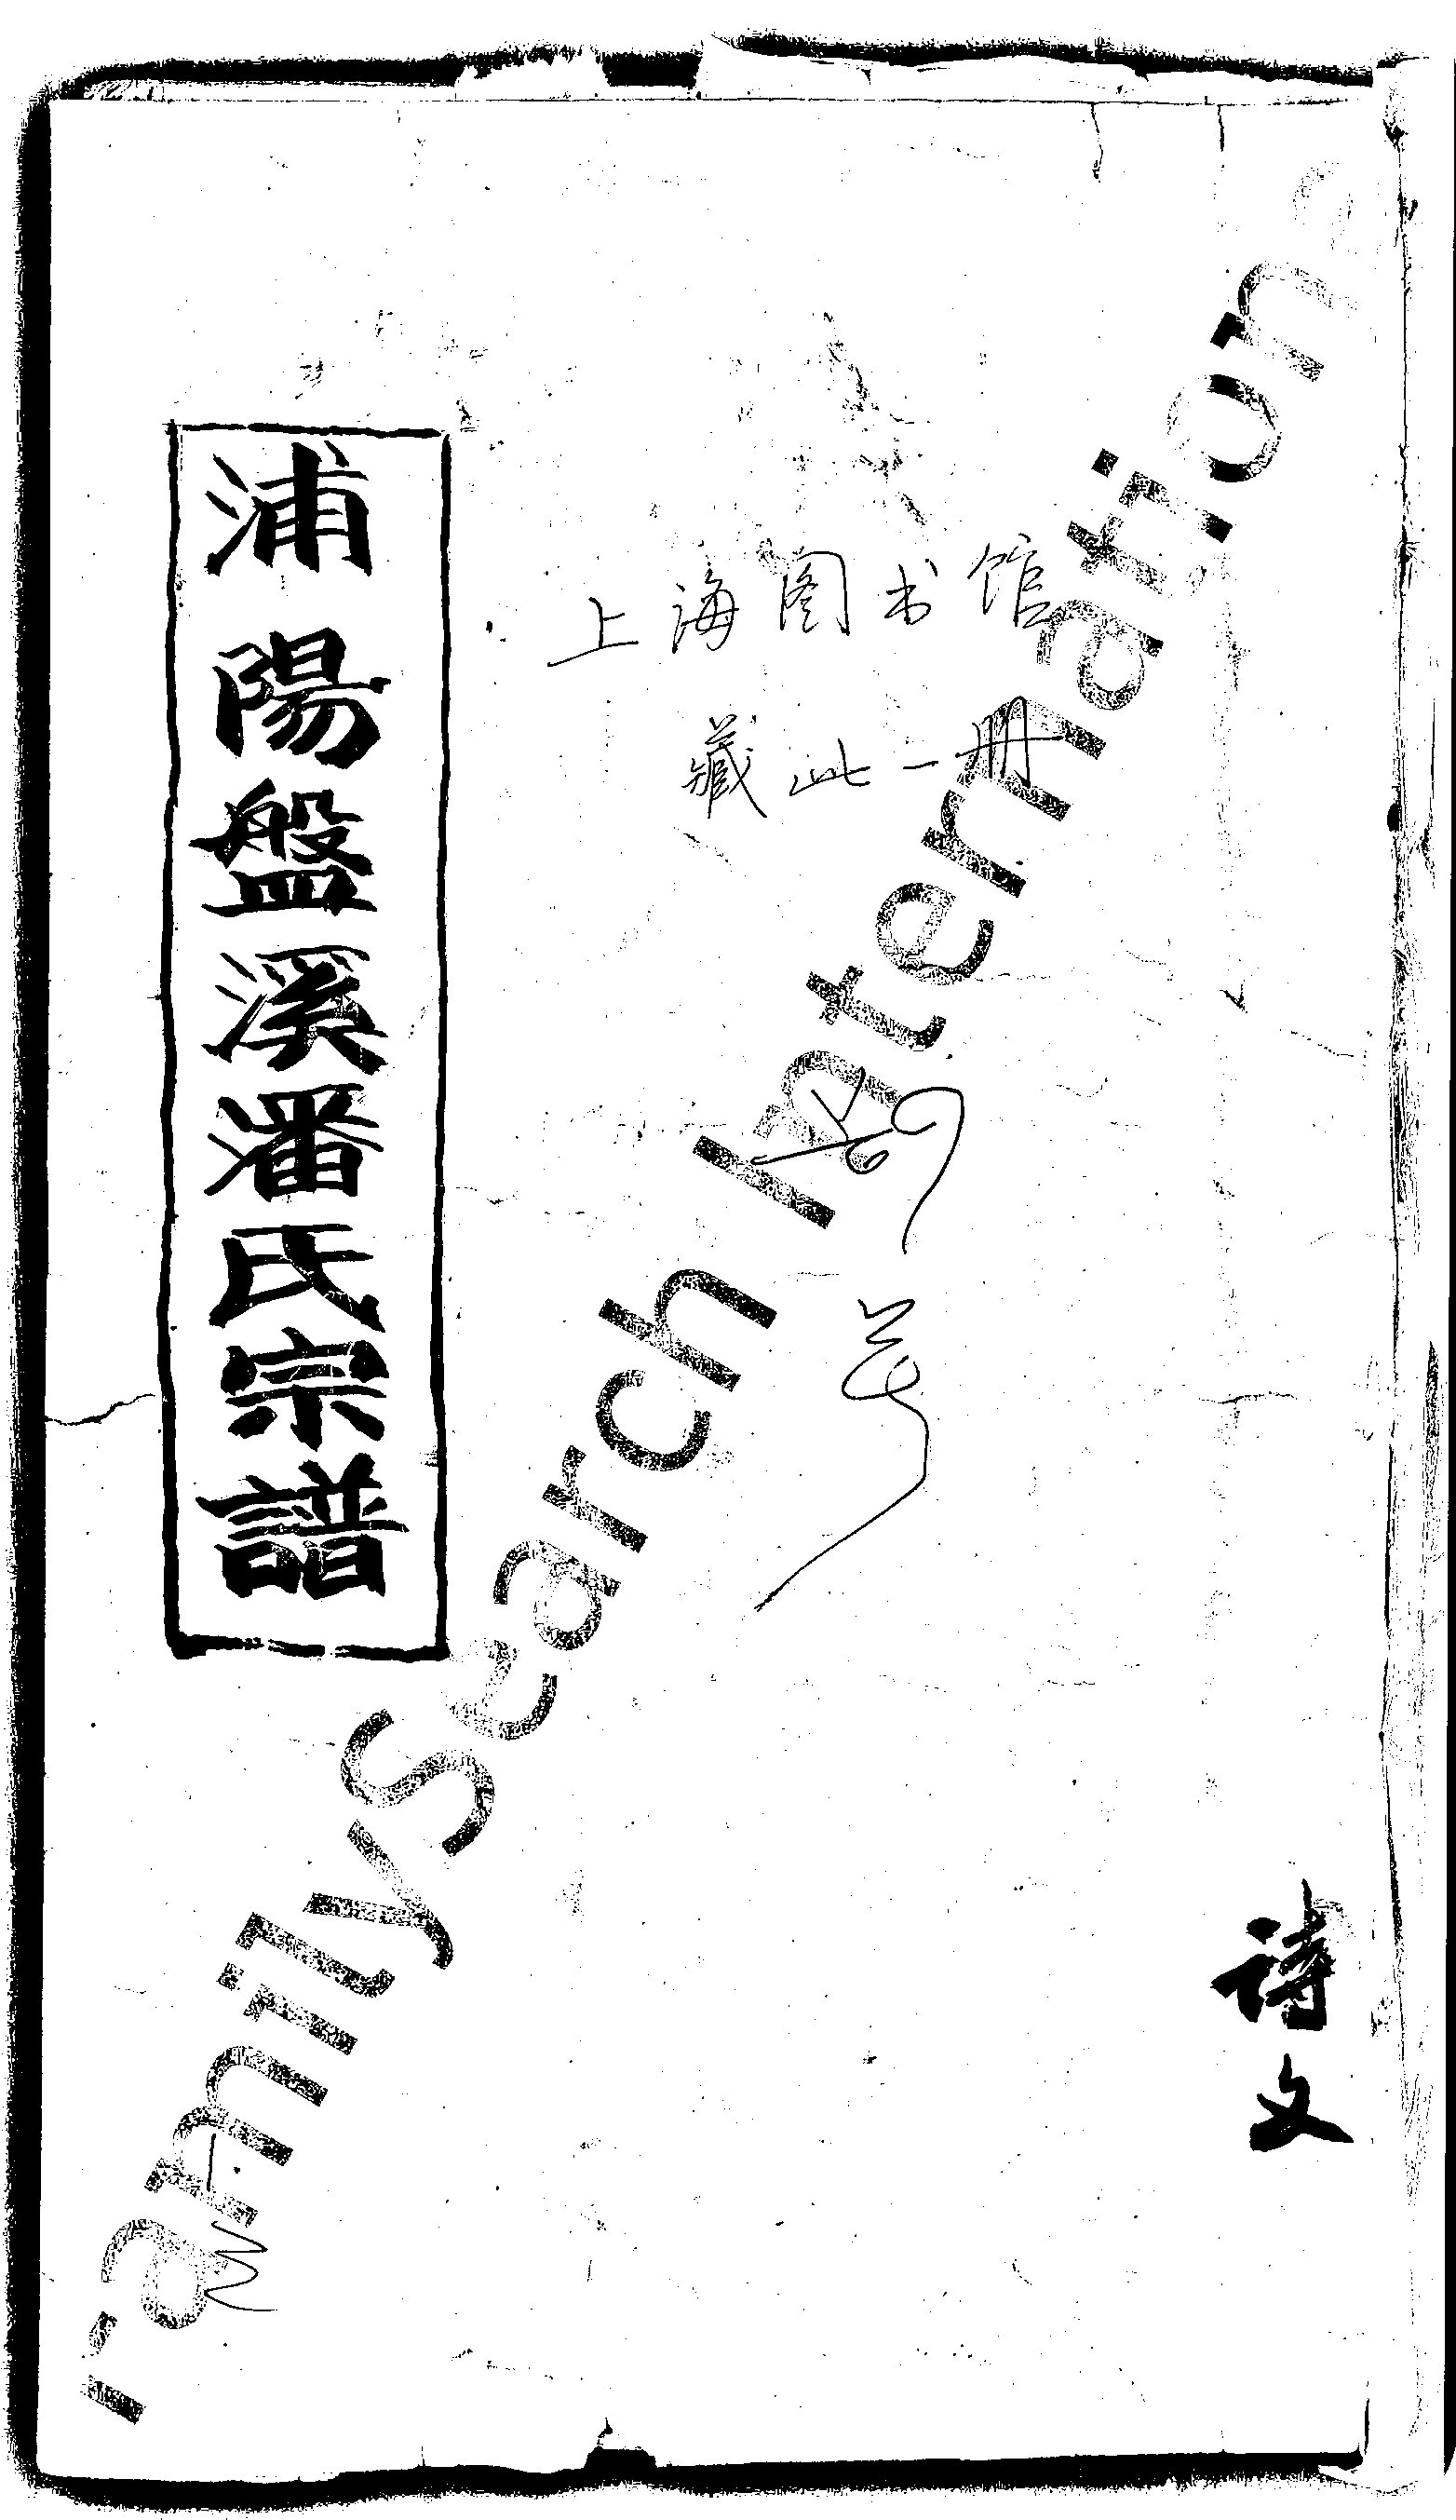 浦陽盤溪潘氏宗譜
上海图书馆
藏此一册
诗文
FamilySearch International